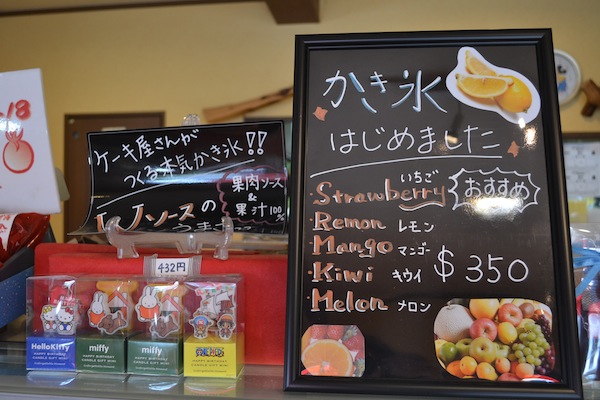 18
ケーキ屋さんが
つくる本気かき氷!!
果肉ソース
&
果汁100%
ソースの
432円
HelloKitty
HAPPY BIRTHDAY
CANDLE GIFT MINI
miffy
HAPPY BIRTHDAY
CANDLE GIFT MINI
miffy
HAPPY BIRTHDAY
CANDLE GIFT MINI
ONE PIECE
HAPPY BIRTHDAY
CANDLE GIFT MINI
かき氷
はじめました
いちご
Strawberry
おすすめ
Remon レモン
Mango マンゴー
Kiwi キウイ
$350
Melon メロン